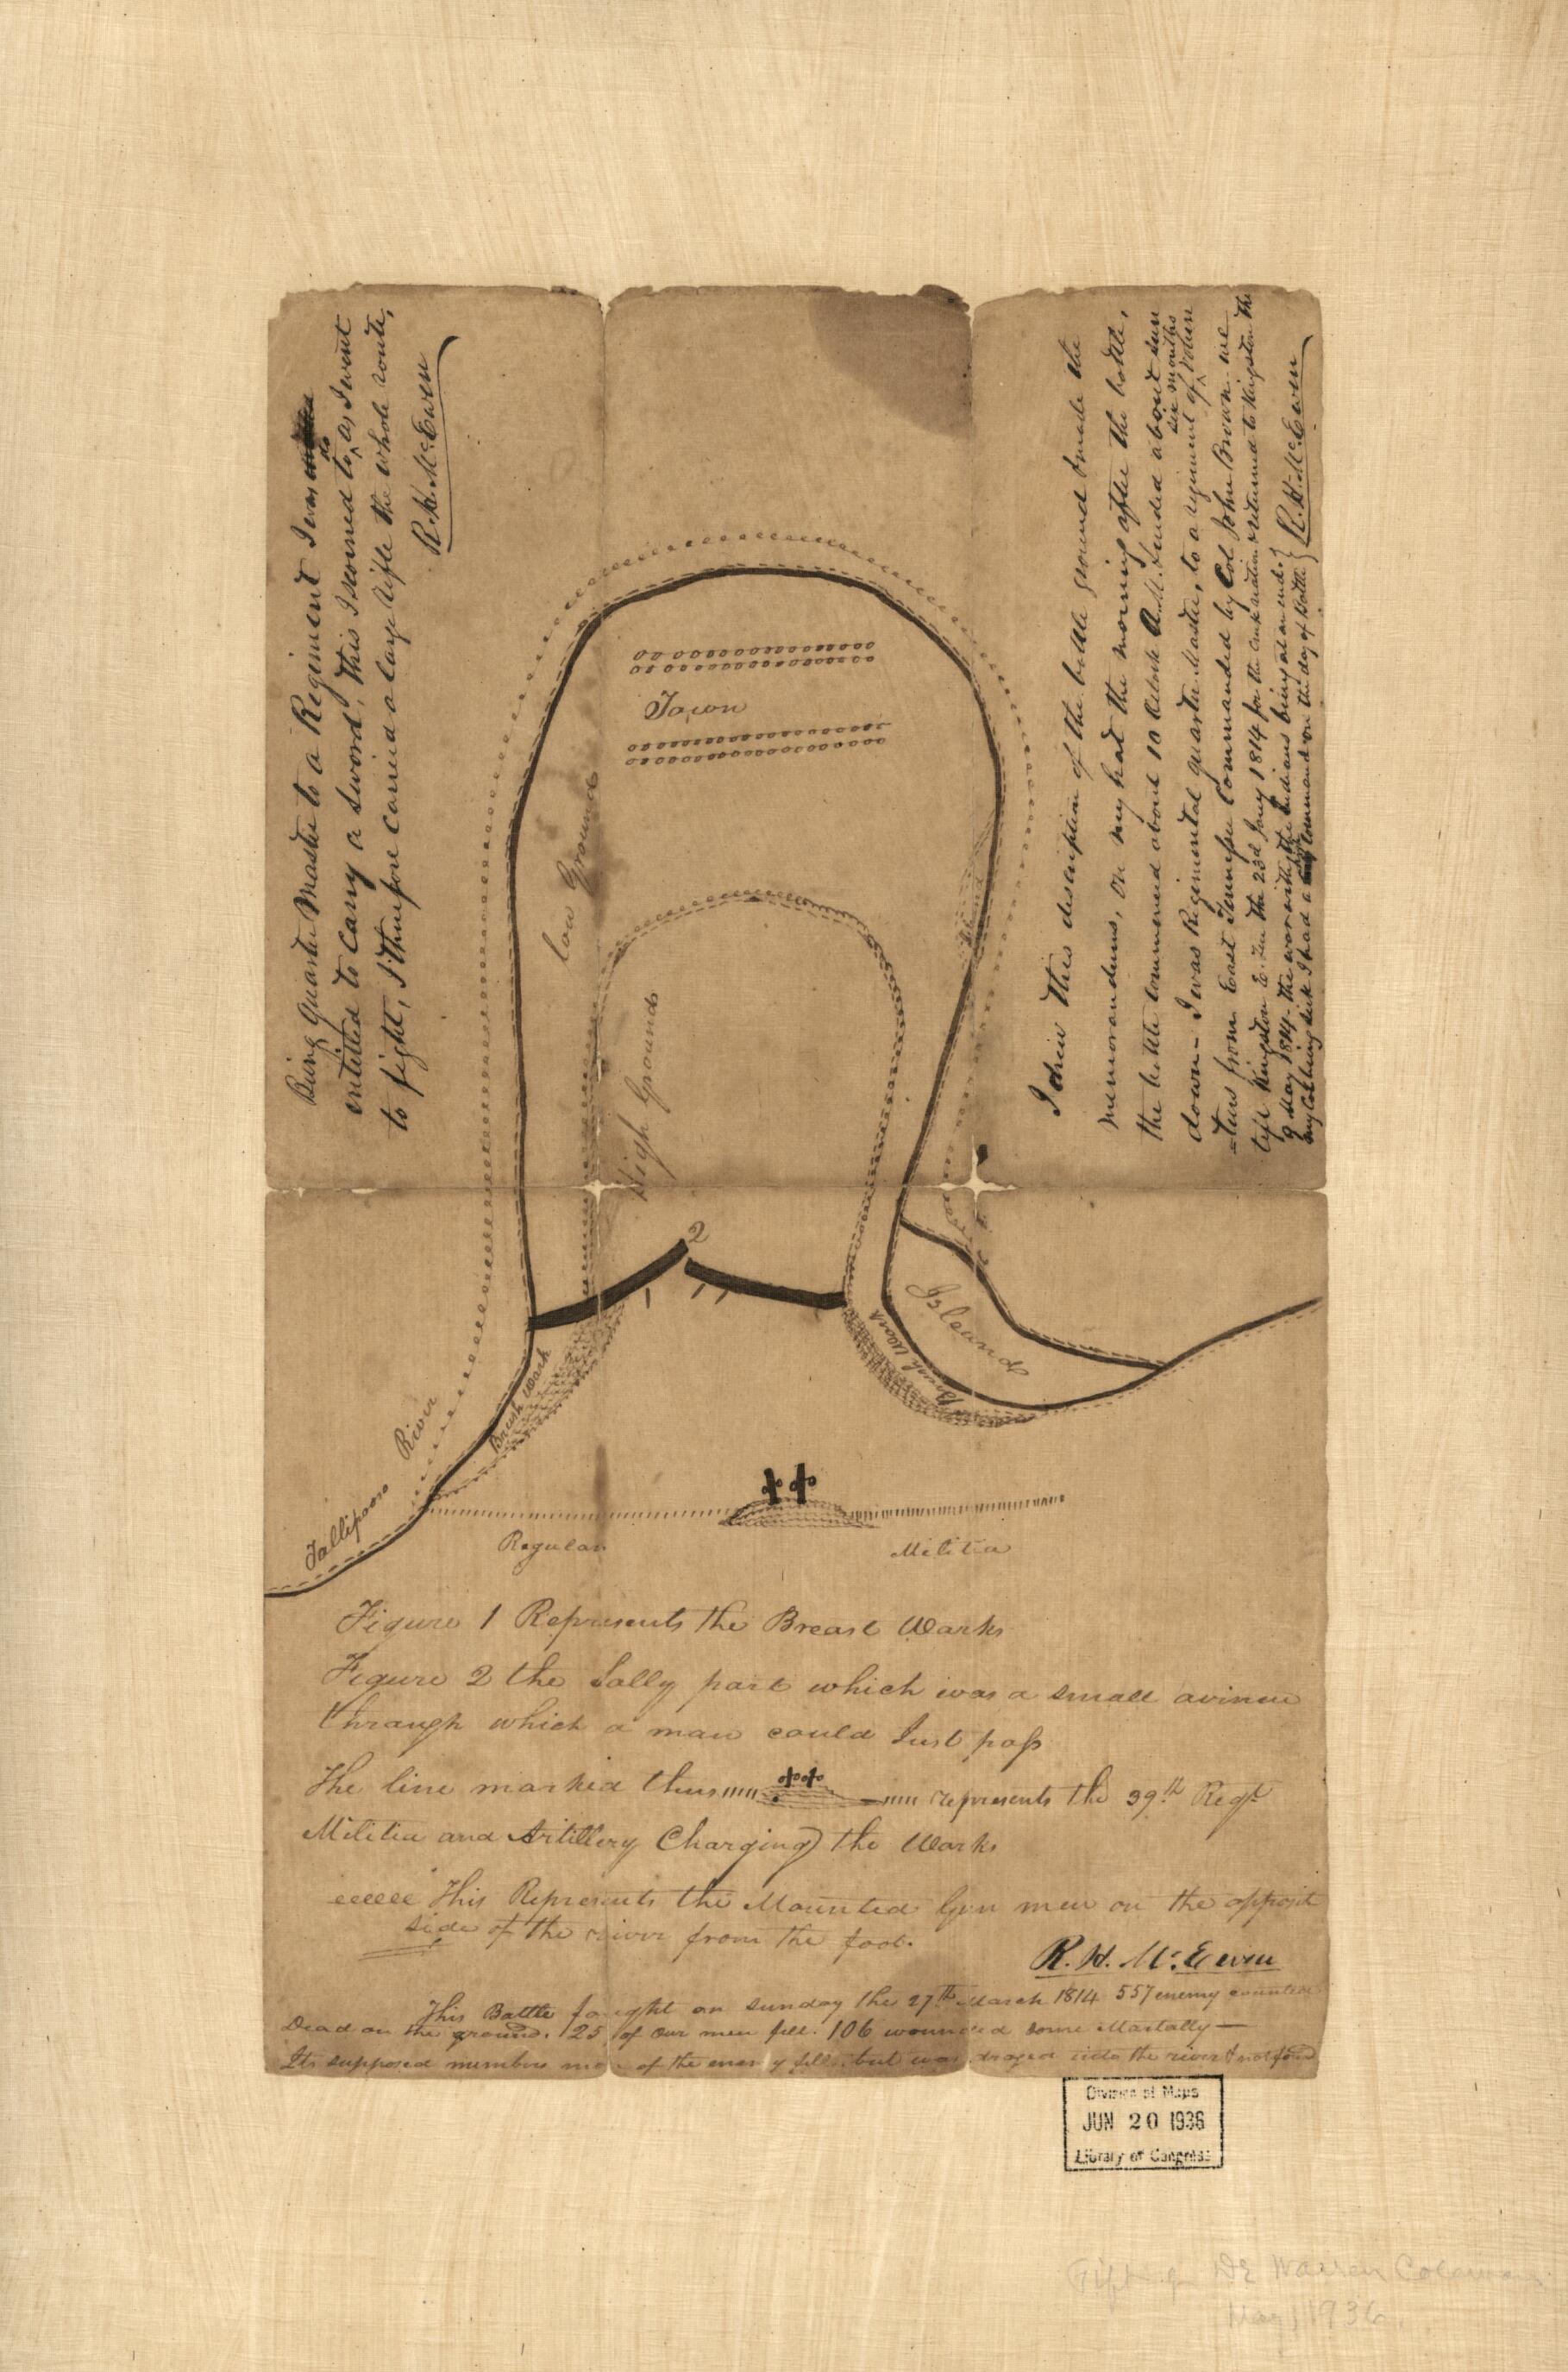 Being Quarter Master to a Regiment I was
entitled to carry a Sword, This I scorned to do as I went
to fight, I Therefore carried a large Rifle the whole route,
R. H. McEwen
I drew this description of the battle ground & made the
memorandums, on my hat the morning after the battle,
the battle commenced about 10 oclock A.M. Ended about sun
down - I was Regimental quarter Master, to a regiment of six months Volun
=teers from East Tennessee Commanded by Col John Brown. we
left Kingston E. Ten the 23d Jany 1814 for the nation & returned to Kingston the
May 1814 - the war with the Indians being at an end.
I had a command on the day of Battle
R. H. McEwen
Town
Low Ground
High Ground
Island
2
1
Island
Brush Wark
Brush Wark
Tallipoose River
Regular
Militia
Figure 1 Represents the Breast Warks
Figure 2 the Sally part which was a small avinue
through which a man could Just pass
The line marked thus represents the 39th Regt
Militia and Artillery Charging the Warks
eeeeee This Represents the Mounted Gun men on the opposit
side of the river from the foot.
R. H. McEwen
This Battle faught on sunday the 27th March 1814 557 enemy counted
Dead on the ground. 25 of Our men fell. 106 wounded some Mortally -
Its supposed members more of the enemy fell but was draged into the river & not found
Division of Maps
JUN 20 1936
Library of Congress
Gift of Dr Warren Coleman
May 1936